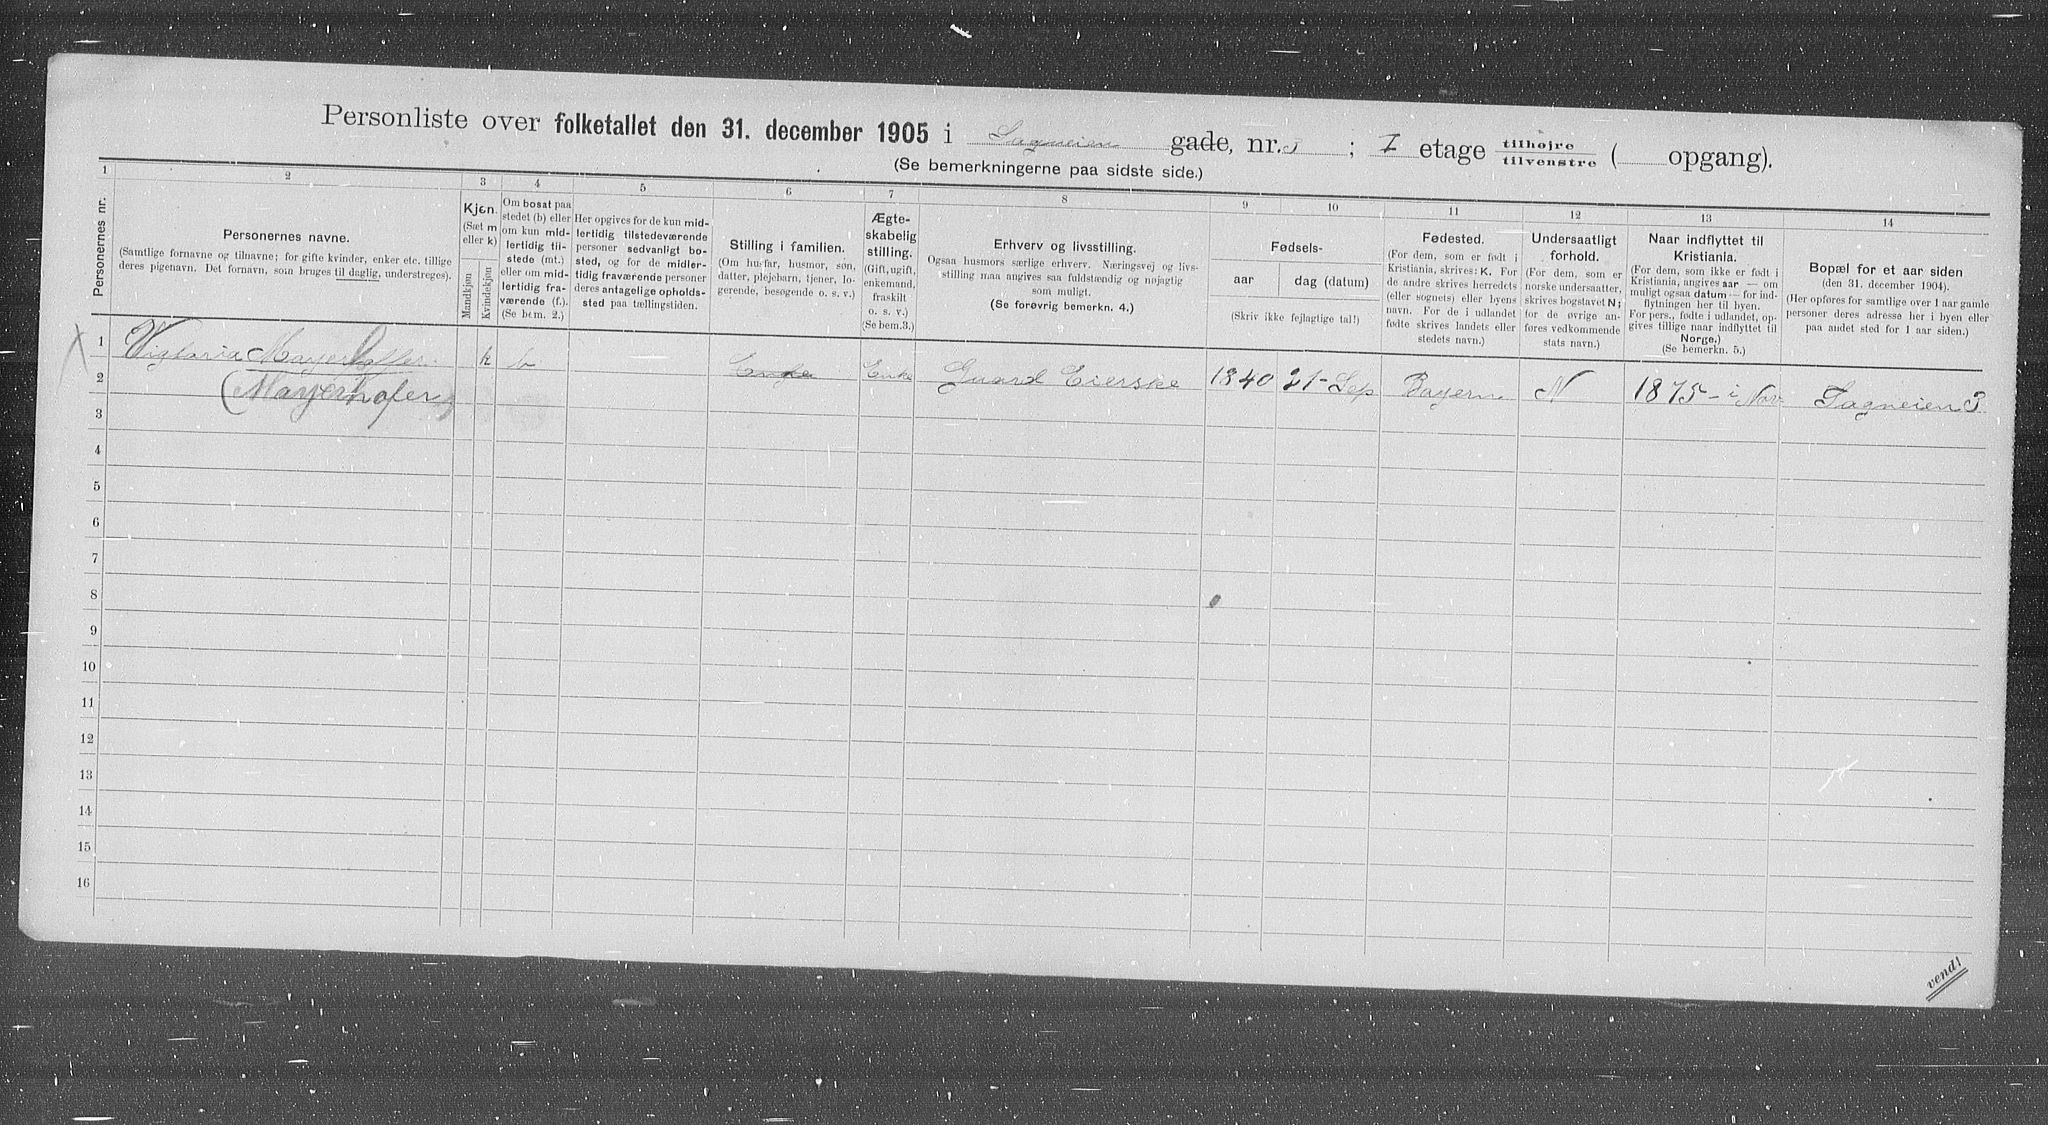 Personliste over folketallet den 31. december 1905 i Sagveien gade, nr. 3 ; I etage tilhøjre tilvenstre ( opgang).
(Se bemerkningerne paa sidste side.)
1 2 3 4 5 6 7 8 9 10 11 12 13 14
Personernes nr.
Personernes navne.
(Samtlige fornavne og tilnavne; for gifte kvinder, enker etc. tillige
deres pigenavn. Det fornavn, som bruges til daglig, understreges).
Kjøn.
(Sæt m
eller k)
Mandkjøn
Kvindekjøn
Om bosat paa
stedet (b) eller
om kun mid-
lertidig til-
stede (mt.)
eller om mid-
lertidig fra-
værende (f.).
(Se bem. 2.)
Her opgives for de kun mid-
lertidig tilstedeværende
personer sedvanligt bo-
sted, og for de midler-
tidig fraværende personer
deres antagelige opholds-
sted paa tællingstiden.
Stilling i familien.
(Om husfar, husmor, søn,
datter, plejebarn, tjener, lo-
gerende, besøgende o. s. v.)
Ægte-
skabelig
stilling.
(Gift, ugift,
enkemand,
fraskilt
o. s. v.)
(Se bem.3.)
Erhverv og livsstilling.
Ogsaa husmors særlige erhverv. Næringsvej og livs-
stilling maa angives saa fuldstændig og nøjagtig
som muligt.
(Se forøvrig bemerkn. 4.)
Fødsels-
aar
dag (datum)
(Skriv ikke fejlagtige tal!)
Fødested.
(For dem, som er født i
Kristiania, skrives: K. For
de andre skrives herredets
(eller sognets) eller byens
navn. For de i udlandet
fødte skrives landets eller
stedets navn.)
Undersaatligt
forhold.
(For dem, som er
norske undersaatter,
skrives bogstavet N;
for de øvrige an-
føres vedkommende
stats navn.)
Naar indflyttet til
Kristiania.
(For dem, som ikke er født i
Kristiania, angives aar — om
muligt ogsaa datum — for ind-
flytningen her til byen.
For pers., fødte i udlandet, op-
gives tillige naar indflyttet til
Norge.)
(Se bemerkn. 5.)
Bopæl for et aar siden
(den 31. december 1904).
(Her opføres for samtlige over 1 aar gamle
personer deres adresse her i byen eller
paa andet sted for 1 aar siden.)
X 1 Vigtoria Mayerhoffer k b Enke Enke Guard Eierske 1840 21- Sep Bayern N 1875- i Nov Sagveien 3
2 (Mayerhofer)
3
4
5
6
7
8
9
10
11
12
13
14
15
16
vend!